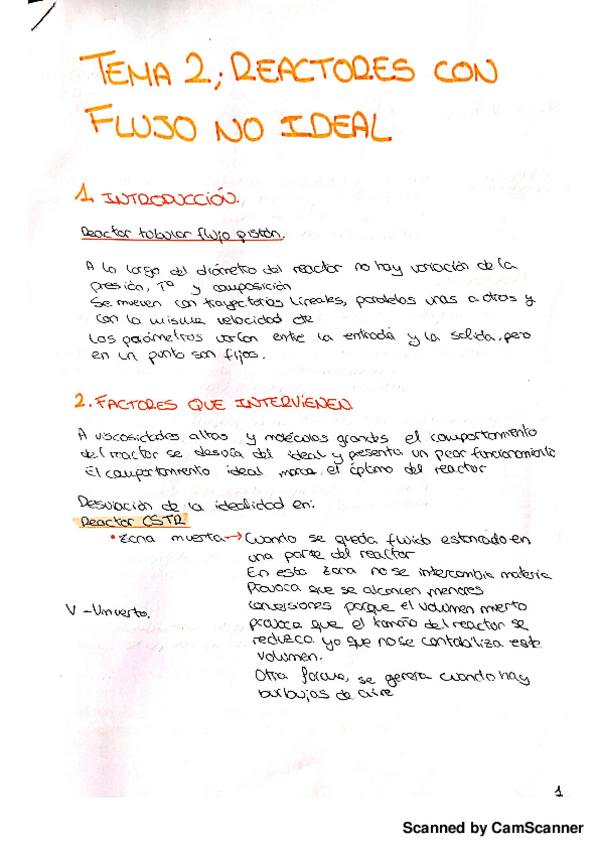 TEMA 2; REACTORES CON
FLUJO NO IDEAL
1. INTRODUCCIÓN.
Reactor tubular flujo pistón.
A lo largo del diámetro del reactor no hay variación de la
presión, Tª y composición
Se mueven con trayectorias lineales, paralelas unas a otras y
con la misma velocidad de
Los parámetros varían entre la entrada y la salida, pero
en un punto son fijos.
2. FACTORES QUE INTERVIENEN
A viscosidades altas y moléculas grandes el comportamiento
del reactor se desvía del ideal y presenta un peor funcionamiento
El comportamiento ideal marca el óptimo del reactor
Desviación de la idealidad en:
Reactor CSTR
• Zona muerta → Cuando se queda fluido estancado en
una parte del reactor
En esta zona no se intercambia materia
Provoca que se alcancen menores
conversiones porque el volumen muerto
provoca que el tamaño del reactor se
reduzca ya que no se contabiliza este
volumen.
V - Vmuerto.
Otra forma, se genera cuando hay
burbujas de aire
1
Scanned by CamScanner